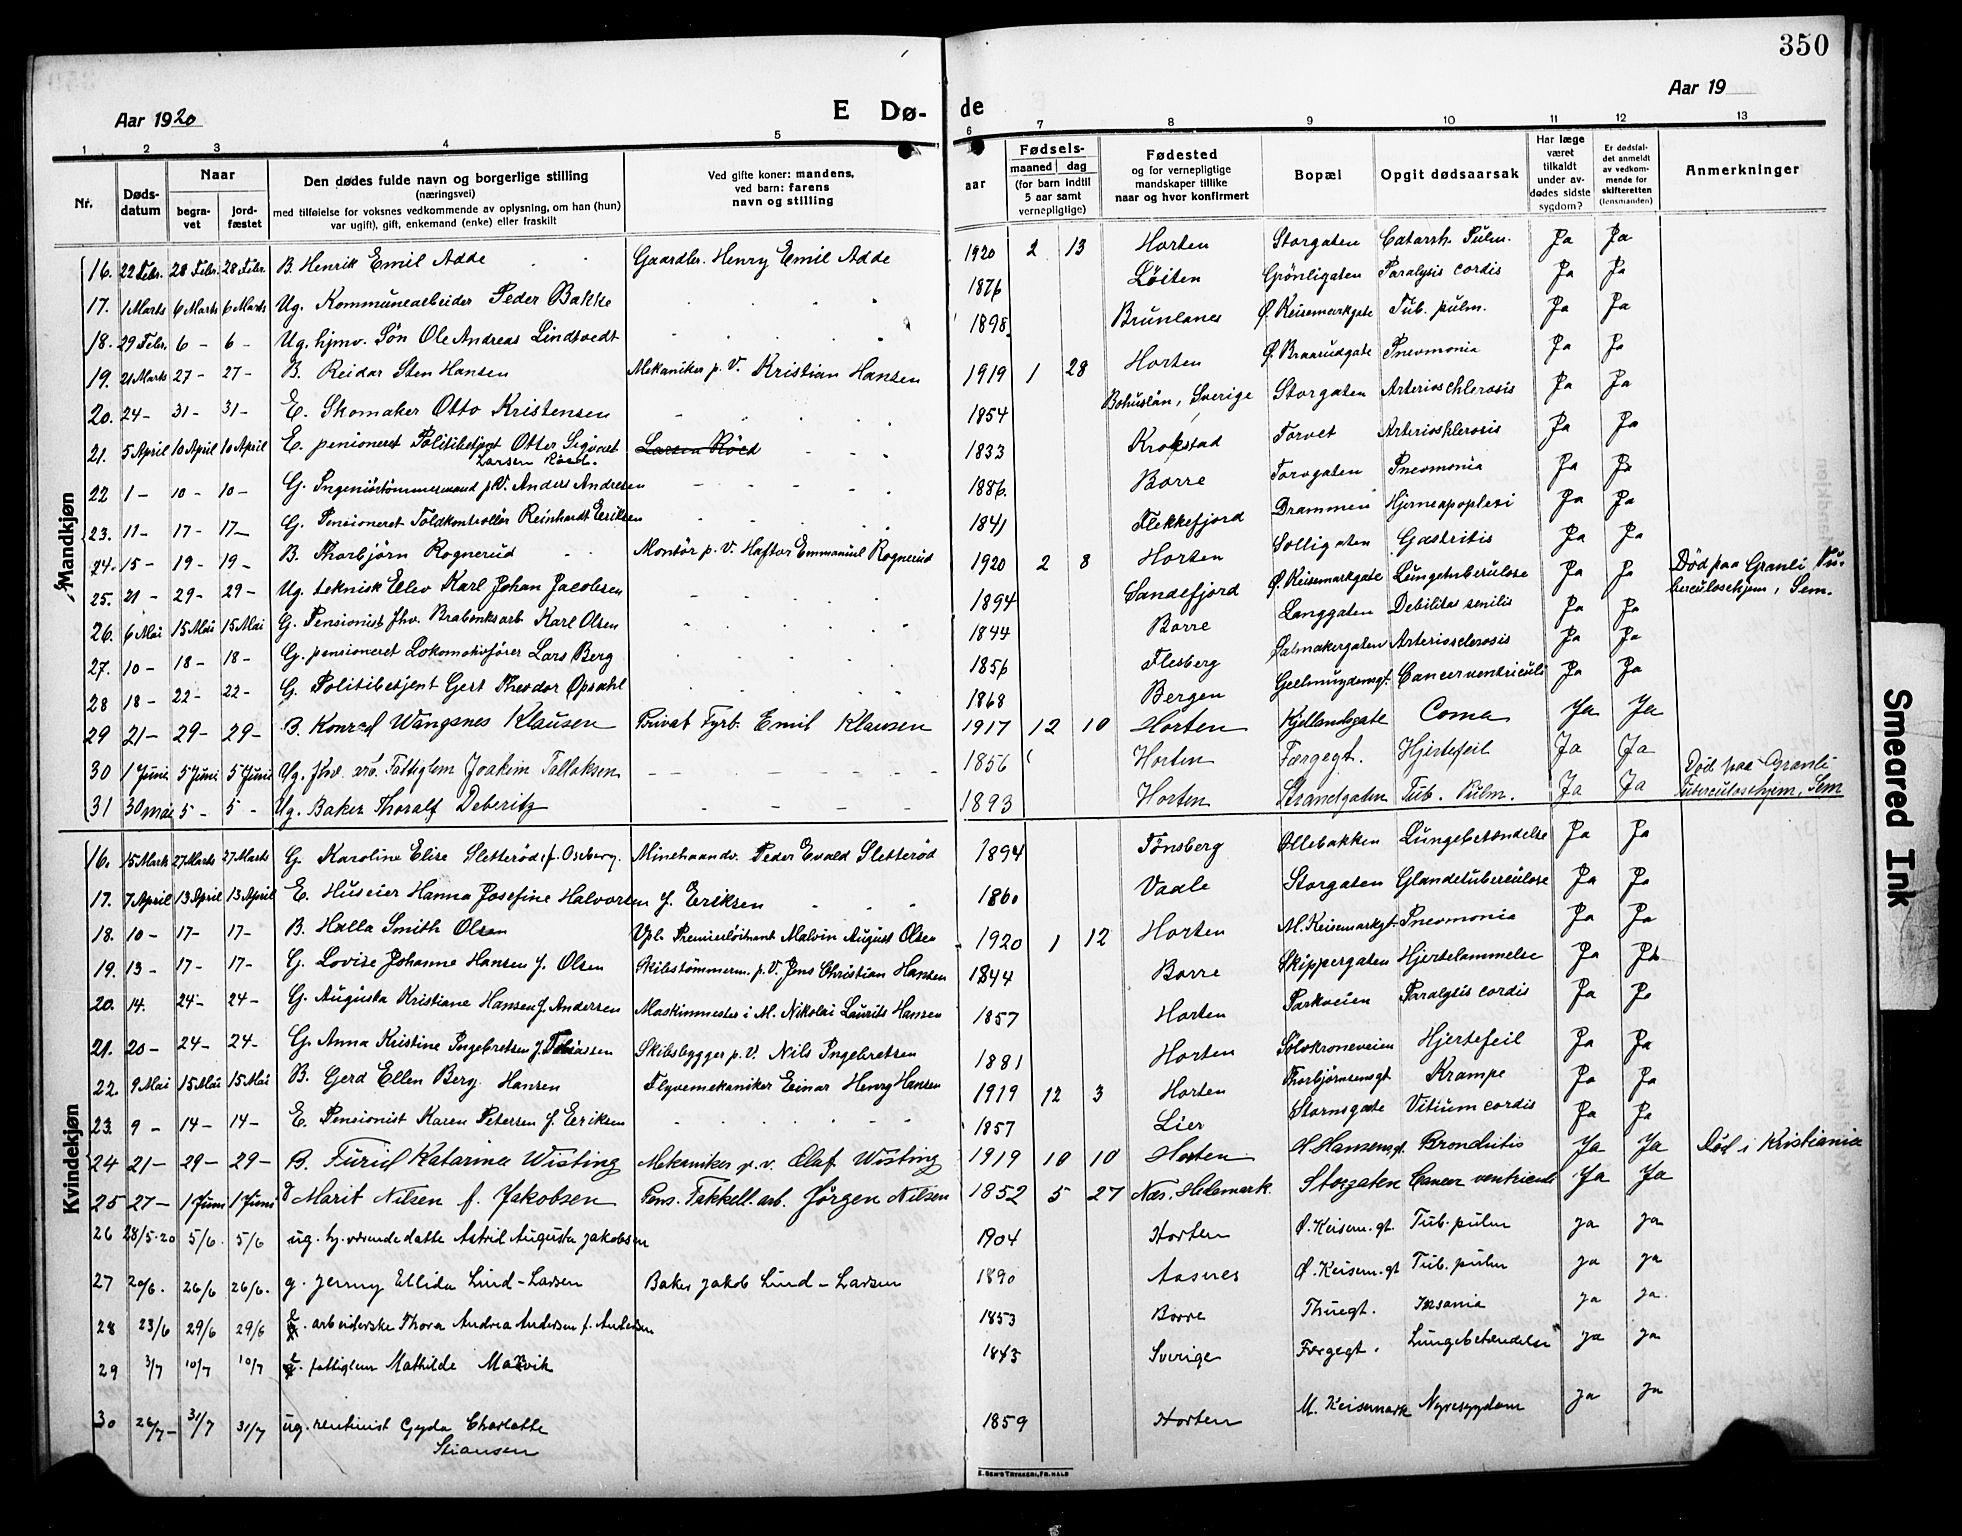 350
Aar 1920
E Dø-
de
Aar 19
1 2 3 4 5 6 7 8 9 10 11 12 13
Nr.
Døds-
datum
Naar
begra-
vet
jord-
fæstet
Den dødes fulde navn og borgerlige stilling
(næringsvei)
med tilføielse for voksnes vedkommende av oplysning, om han (hun)
var ugift), gift, enkemand (enke) eller fraskilt
Ved gifte koner: mandens,
ved barn: farens
navn og stilling
aar
Fødsels-
maaned dag
(for barn indtil
5 aar samt
vernepligtige)
Fødested
og for vernepligtige
mandskaper tillike
naar og hvor konfirmert
Bopæl
Opgit dødsaarsak
Har læge
været
tilkaldt
under av-
dødes sidste
sygdom?
Er dødsfal-
det anmeldt
av vedkom-
mende for
skifteretten
(lensmanden)
Anmerkninger
Mandkjøn
16. 22 Febr. 28 Febr. 28 Febr. B. Henrik Emil Adde Gaardbr. Henry Emil Adde 1920 2 13 Horten Storgaten Catarrh. Pulm. Ja Ja
17. 1 Marts 6 Marts 6 Marts Ug. Kommunearbeider Peder Bakke 1876 Løiten Grønligaten Paralysis cordis Ja Ja
18. 29 Febr. 6 – 6 – Ug. hjmv. Søn Ole Andreas Lindtvedt 1898 Brunlanes Ø. Keisemarkgate Tub. pulm. Ja Ja
19. 21 Marts 27 – 27 – B. Reidar Sten Hansen Mekaniker p. V. Kristian Hansen 1919 1 28 Horten Ø. Braarudgate Pnevmonia Ja Ja
20. 24 – 31 – 31 – E. Skomaker Otto Kristensen 1854 Bohuslän, Sverige Storgaten Arterioschlerosis Ja Ja
21. 5 April 10 April 10 April E. penioneret Politibetjent Otter Sigvart Larsen Röed. Larsen Röed 1833 Krokstad Torvet Arteriosklerosis Ja Ja
22 1 – 10 – 10 – G. Ingeniörtömmermand p.V. Anders Andresen 1886. Borre Torvgaten Pnevmonia Ja Ja
23. 11 – 17 – 17 – G. Pensioneret Toldkontrollör Reinhardt Eriksen 1841 Flekkefjord Drammen Hjerneapoplexi Ja Ja
24. 15 – 19 – 19 – B. Thorbjörn Rognerud Montör p. V. Haftor Emmanuel Rognerud 1920 2 8 Horten Solligaten Gastritis Ja Ja
25. 21 – 29 – 29 – Ug. teknisk Elev Karl Johan Jacobsen 1894 Sandefjord Ø. Keisemarkgate Lungetuberculose Ja Ja Död paa Granli Tu-
berculosehjem, Sem.
26. 6 Mai 15 Mai 15 Mai G. Pensionist fhv. Karl Olsen 1844 Borre Langgaten Debilitas senilis Ja Ja
27. 10 – 18 – 18 – G. pensioneret Lokomotivfører Lars Berg 1856 Flesberg Arteriosclerosis Ja Ja
28 18 – 22 – 22 – G. Politibetjent Gert Theodor Opsahl 1868 Bergen Cancer ventriculi Ja Ja
29 21 – 29 – 29 – B. Konrad Wangsnes Klausen Privat Fyrb. Emil Klausen 1917 12 10 Horten Kjellandsgate Coma Ja Ja
30 1 Juni 5 Juni 5 Juni Ug. fhv. arb. Fattiglem Joakim Tollaksen 1856 Horten Færgegt. Hjertefeil Ja Ja
31 30 mai 5 – 5 – Ug. Baker Thoralf Deberitz 1893 Horten Strandgaten Tub. Pulm. Ja Ja Död paa Granli
Tuberculosehjem, Sem
Kvindekjøn
16. 15 Marts 27 Marts 27 Marts G. Karoline Elise Sletteröd f. Oseberg. Minehaandv. Peder Evald Sletteröd 1894 Tönsberg Ollebakken Lungebetændelse Ja Ja
17. 7 April 13 April 13 April E. Huseier Hanna Josefine Halvorsen f. Eriksen 1860 Vaale Storgaten Glandetuberculose Ja Ja
18. 10 – 17 – 17 – B. Halla Smith Olsen Vpl. Premierlöitnant Malvin August Olsen 1920 1 12 Horten M. Keisemarkgt. Pnevmonia Ja Ja
19. 13 – 17 – 17 – G. Lovise Johanne Hansen f. Olsen Skibstömmerm. p. V. Jens Christian Hansen 1844 Borre Skippergaten Hjertelammelse Ja Ja
20. 14. 24 – 24 – G. Augusta Kristiane Hansen f. Andersen Maskinmester i M. Nikolai Laurits Hansen 1857 Horten Parkveien Paralysis cordis Ja Ja
21. 20 – 24 – 24 – G. Anna Kristine Ingebretsen f. Tobiassen Skibsbygger p. V. Nils Ingebretsen 1881 Horten Sölvkroneveien Hjertefeil Ja Ja
22. 9 Mai 15 Mai 15 Mai B. Gerd Ellen Berg Hansen Flyvemekaniker Einar Henry Hansen 1919 12 3 Horten Thorbjörnsensgt Krampe Ja Ja
23. 9 – 14 – 14 – E. Pensionist Karen Petersen f. Eriksen 1857 Lier Stormsgate Vitium cordis Ja Ja
24 21 – 29 – 29 – B. Turid Katarina Wisting Mekaniker p. v. Olaf Wisting 1919 10 10 Horten H. Hansensgt. Bronchitis Ja Ja Död i Kristiania
25 27 – 1 Juni 1 Juni G Marit Nilsen f. Jakobsen Pens. Takkell. arb. Jørgen Nilsen 1852 5 27 Næs, Hedemark Storgaten Cancer ventriculi Ja Ja
26 28/5-20 5/6. 5/6 ug. hj. værende datte Astrid Augusta Jakobsen 1904 Horten Ø. Keisem. gt. Tub. pulm ja ja
27 20/6. 26/6 26/6. g. Jenny Ellida Lind-Larsen Baker Jakob Lind-Larsen 1890 Aasnes Ø. Keisem. gt Tub. pulm ja ja
28 23/6 29/6 29/6 E. arbeiderske Thora Andrea Andersen f. Andersen 1853 Borre Thuegt. Insania ja ja.
29 3/7 10/7 10/7 E. fattiglem Mathilde Marvik 1843 Sverige Færgegt. Lungebetændelse ja ja
30 26/7 – 31/7 31/7 ug. rentenist Gyda Charlotte
Stiansen 1859 Horten M. Keisemark Nyresygdom ja ja
E. SEM'S TRYKKERI, FR.HALD
Smeared Ink